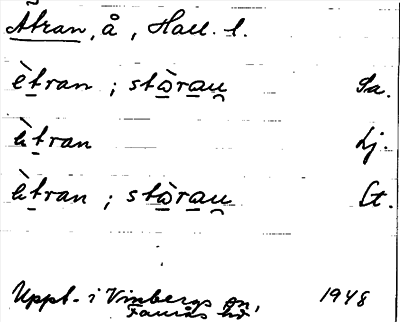 Ätran, å, Hall. l.
ètran ; stòrau Sa.
ätran Lj.
ètran ; stòrau St.
Uppt. i Vinbergs sn, 1948
Faurås hd